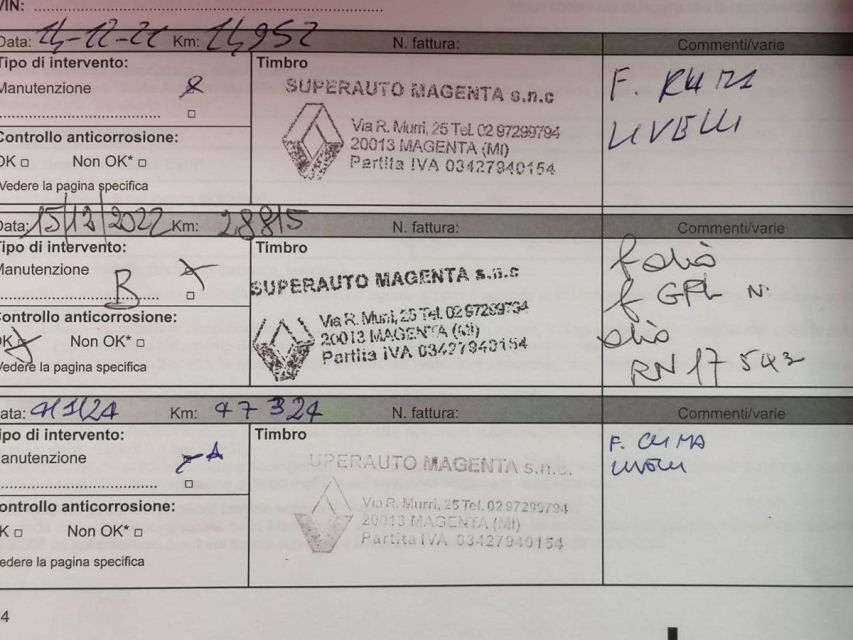 VIN:
Data: 14-12-21 Km: 14952 N. fattura: Commenti/varie
Tipo di intervento: Timbro
Manutenzione
SUPERAUTO MAGENTA s.n.c
Via R. Murri, 25 Tel. 02 97299794
20013 MAGENTA (MI)
Partita IVA 03427940154
F. CLIMA
LIVELLI
Controllo anticorrosione:
OK Non OK*
Vedere la pagina specifica
Data: 15/12/2022 Km: 28815 N. fattura: Commenti/varie
Tipo di intervento: Timbro
Manutenzione
B
SUPERAUTO MAGENTA s.n.c
Via R. Murri, 25 Tel. 02 97299794
20013 MAGENTA (MI)
Partita IVA 03427940154
f olio
f GPL N.
olio
RN 17 5W
Controllo anticorrosione:
OK Non OK*
Vedere la pagina specifica
Data: 4/1/24 Km: 47324 N. fattura: Commenti/varie
Tipo di intervento: Timbro
Manutenzione A
UPERAUTO MAGENTA s.n.c.
Via R. Murri, 25 Tel. 02 97299794
20013 MAGENTA (MI)
Partita IVA 03427940154
F. CLIMA
LIVELLI
Controllo anticorrosione:
OK Non OK*
Vedere la pagina specifica
4